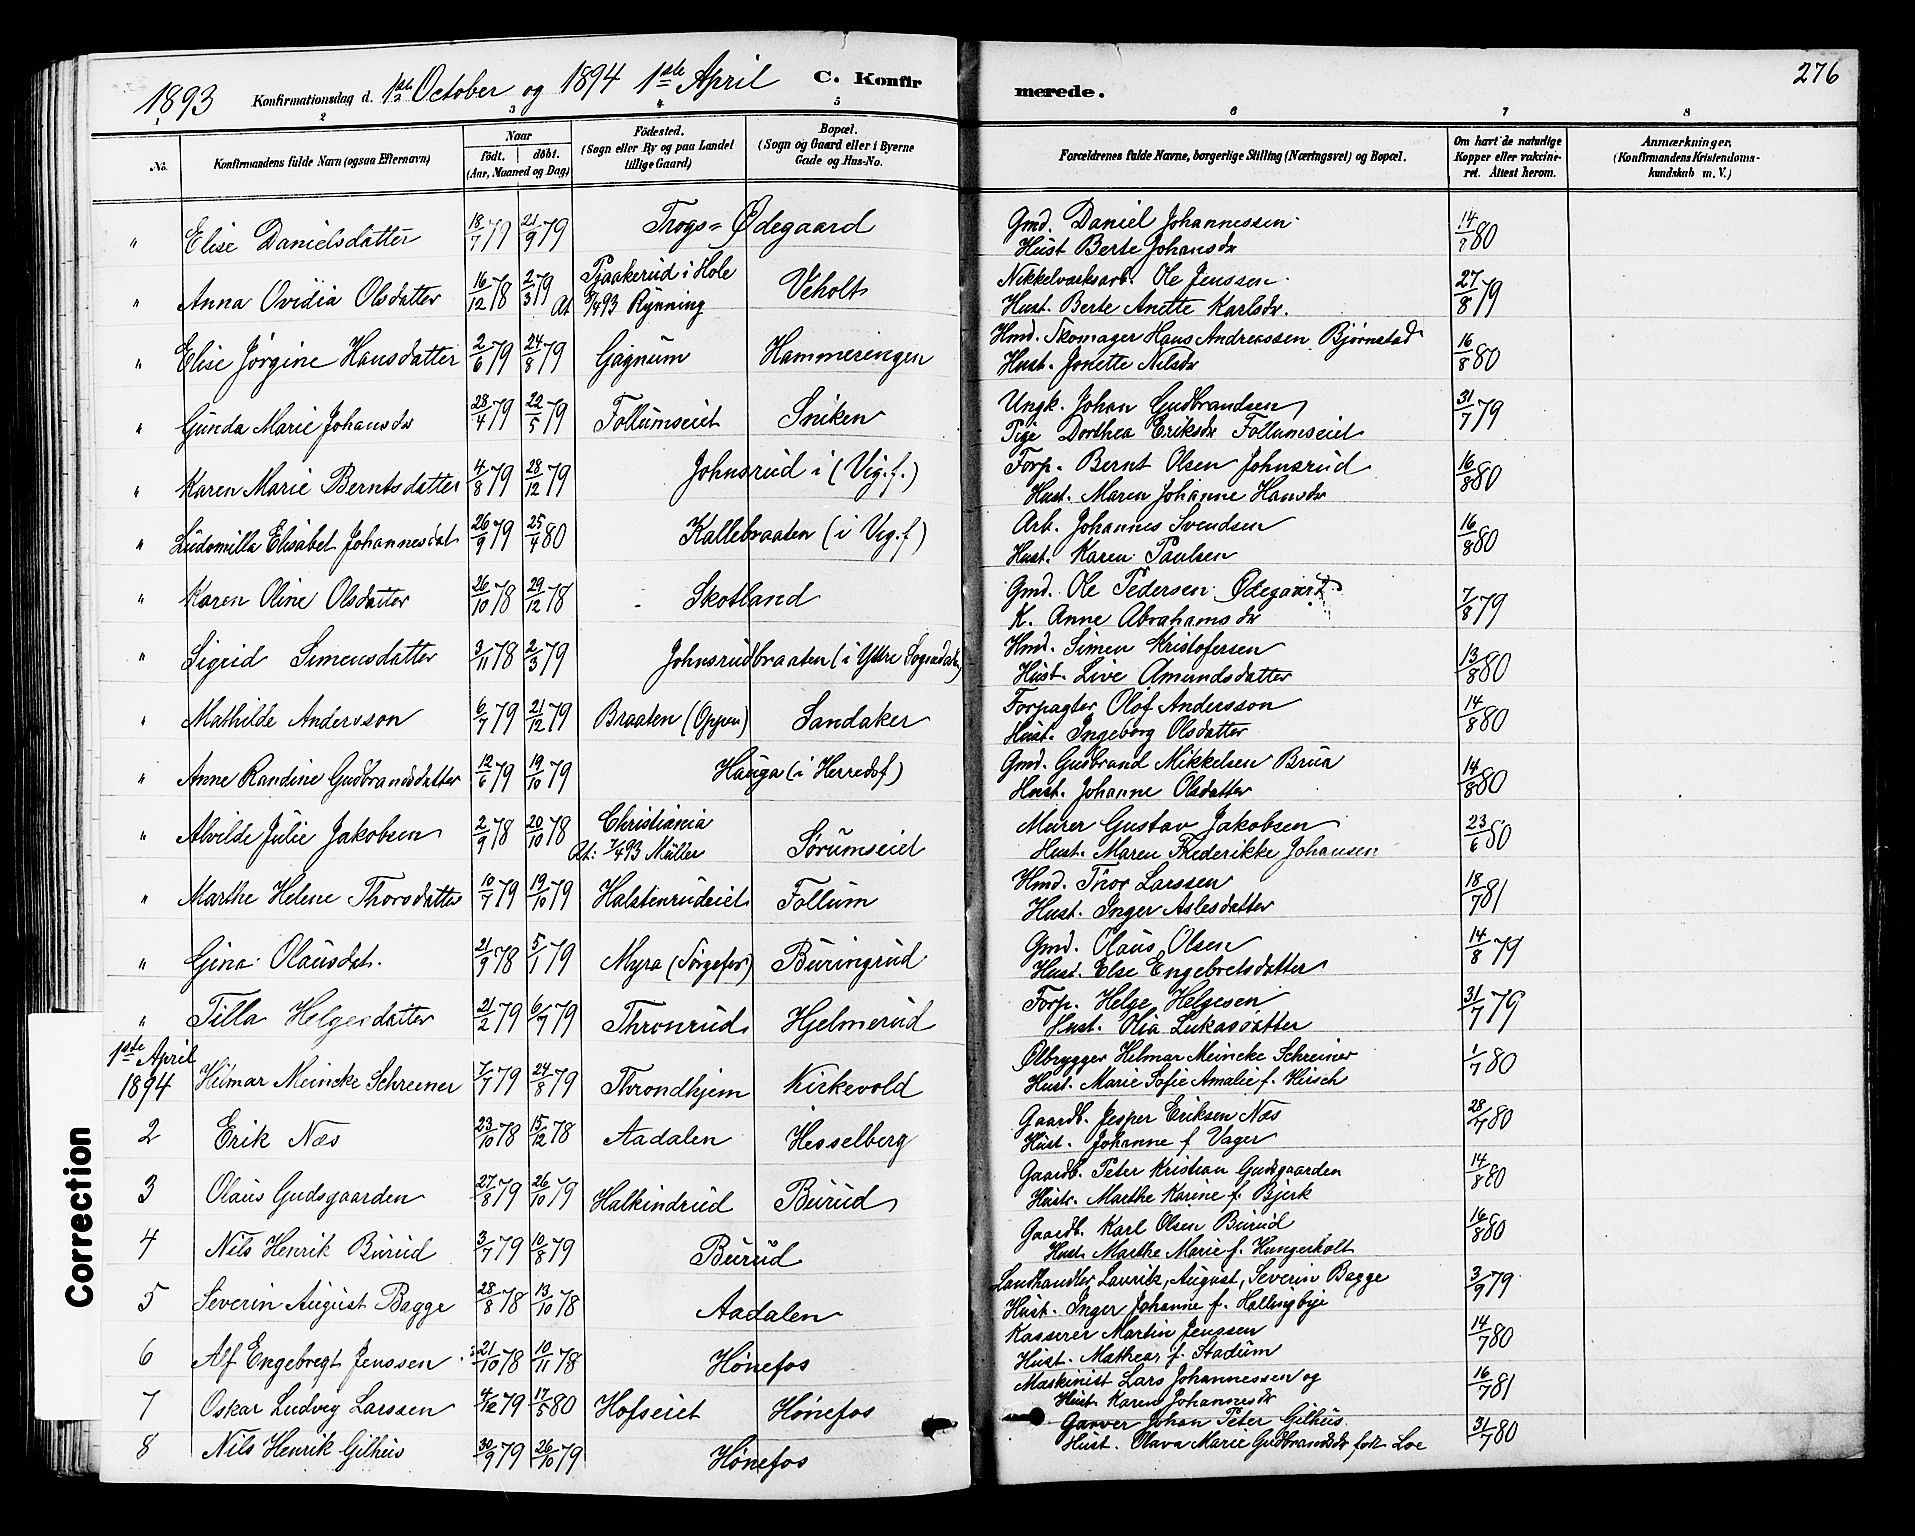 1893 Konfirmationsdag d. 1ste October og 1894 1ste April C. Konfirmerede. 276
1 2 3 4 5 6 7 8
No. Konfirmandens fulde Navn (ogsaa Efternavn) Naar født. døbt. (Aar, Maaned og Dag) Fødested. (Sogn eller By og paa Landet tillige Gaard) Bopæl. (Sogn og Gaard eller i Byerne Gade og Hus-No. Forældrenes fulde Navne, borgerlige Stilling (Næringsvei) og Bopæl. Om havt de naturlige Kopper eller vakcineret. Attest herom. Anmærkninger. (Konfirmandens Kristendomskundskab m. V.)
" Elise Danielsdatter 18/7 79 21/9 79 Trogs=Ødegaard Gmd. Daniel Johannessen 14/8 80
Hust Berte Johansdr
" Anna Ovidia Olsdatter 16/12 78 2/3 79 Pjaakerud i Hole Veholt Nikkelværksarb. Ole Jenssen 27/8 79
At 5/4 93 Rynning Hust. Berte Anette Karlsdr.
" Elise Jørgine Hansdatter 2/6 79 24/8 79 Gagnum Hammeringen Hmd. Skomager Hans Andreassen Bjørnstad 16/8 80
Hust. Jonette Nilsdr
" Gunda Marie Johansdr 28/4 79 22/5 79 Follumseiet Sniken Ungk. Johan Gudbrandsen 31/7 79
Pige Dorthea Eriksdr Follumseiet
" Karen Marie Berntsdatter 4/8 79 28/12 79 Johnsrud i (Vig.f.) Forp. Bernt Olsen Johnsrud 16/8 80
Hust. Maren Johanne Hansdr
" Ludomilla Elisabet Johannesdat 26/9 79 25/4 80 Kallebraaten (i Vig.f) Arb. Johannes Svendsen 16/8 80
Hust. Karen Paulsen
" Karen Oline Olsdatter 26/10 78 29/12 78 Skotland Gmd. Ole Pedersen Ødegaard 7/8 79
K. Anne Abrahamsdr
" Sigrid Simensdatter 3/11 78 2/3 79 Johnsrudbraaten (i Yttre Sognedalen) Hmd. Simen Kristofersen 13/8 80
Hust. Live Amundsdatter
" Mathilde Andersson 6/7 79 21/12 79 Braaten (Oppen) Sandaker Forpagter Olof Andersson 14/8 80
Hust. Ingeborg Olsdatter
" Anne Randine Gudbrandsdatter 12/6 79 19/10 79 Hauga (i Herredsf) Gmd. Gudbrand Mikkelsen Brua 14/8 80
Hust. Johanne Olsdatter
" Alvilde Julie Jakobsen 2/9 78 20/10 78 Christiania Sørumseiet Murer Gustav Jakobsen 23/6 80
At: 7/4 93 Müller Hust. Maren Frederikke Johansen
" Marthe Helene Thorsdatter 10/7 79 19/10 79 Halstenrudeiet Follum Hmd. Thor Larssen 18/7 81
Hust. Inger Aslesdatter
" Gina Olausdat. 21/9 78 5/1 79 Myra (Sørgefos) Buringrud Gmd. Olaus Olsen 14/8 79
Hust. Else Engebretsdatter
" Tilla Helgesdatter 21/2 79 6/7 79 Thronrud Hjelmerud Forp. Helge Helgesen 31/7 79
Hust. Olia Lukasdatter
1ste April
1894 Hilmar Meincke Schreiner 7/7 79 24/8 79 Throndhjem Kirkevold Ølbrygger Helmar Meincke Schreiner 1/7 80
Hust. Marie Sofie Amalie f. Hirsch
2 Erik Næs 23/10 78 15/12 78 Aadalen Hesselberg Gaardb. Jesper Eriksen Næs 28/7 80
Hust. Johanne f Vager
3 Olaus Gudsgaarden 27/8 79 26/10 79 Halkindrud Burud Gaardb. Peter Kristian Gudsgaarden 14/8 80
Hust. Marthe Karine f. Bjerk
4 Nils Henrik Burud 3/7 79 10/8 79 Burud Gaardb. Karl Olsen Burud 16/8 80
Hust. Marthe Marie f. Hungerholt
5 Severin August Bagge 28/8 78 13/10 78 Aadalen Landhandler Lauritz, August, Severin Bagge 3/9 79
Hust. Inger Johanne f. Hallingbye
6 Alf Engebregt Jenssen 21/10 78 10/11 78 Hønefos Kasserer Martin Jenssen 14/7 80
Hust. Mathea f. Stadum
7 Oskar Ludvig Larssen 4/12 79 17/5 80 Hofseiet Hønefos Maskinist Lars Johannessen og 16/7 81
Hust Karen Johannesdr
8 Nils Henrik Gilhus 30/9 79 26/10 79 Hønefos Garver Johan Peter Gilhus 31/7 80
Hust. Olava Marie Gudbrandsdr født Loe
Correction